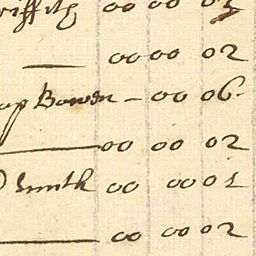 riffith 00 00 03
—— 00 00 02
Bowen – 00 06
—— 00 00 02
Smith 00 00 01
—— 00 00 02